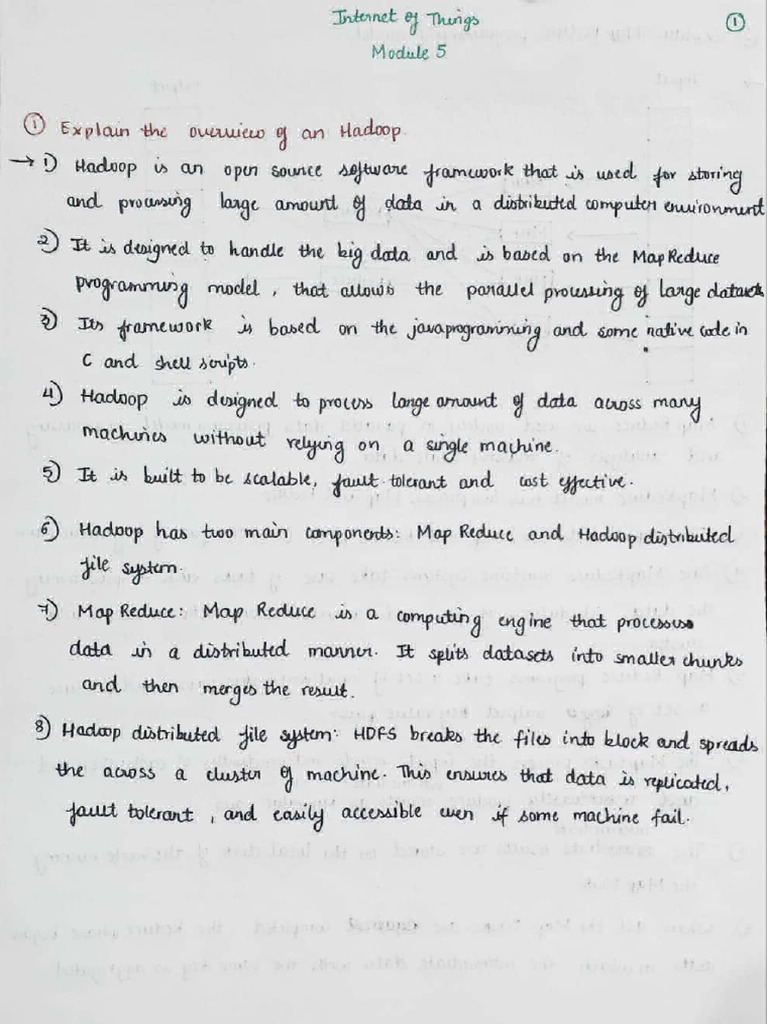 Internet of Things
①
Module 5
① Explain the overview of an Hadoop.
→ 1) Hadoop is an open source software framework that is used for storing
and processing large amount of data in a distributed computer environment
2) It is designed to handle the big data and is based on the MapReduce
programming model, that allows the parallel processing of large datasets
3) Its framework is based on the java programming and some native code in
C and shell scripts.
4) Hadoop is designed to process large amount of data across many
machines without relying on a single machine.
5) It is built to be scalable, fault tolerant and cost effective.
6) Hadoop has two main components: Map Reduce and Hadoop distributed
file system.
7) Map Reduce: Map Reduce is a computing engine that processes
data in a distributed manner. It splits datasets into smaller chunks
and then merges the result.
8) Hadoop distributed file system: HDFS breaks the files into block and spreads
the across a cluster of machine. This ensures that data is replicated,
fault tolerant, and easily accessible even if some machine fail.